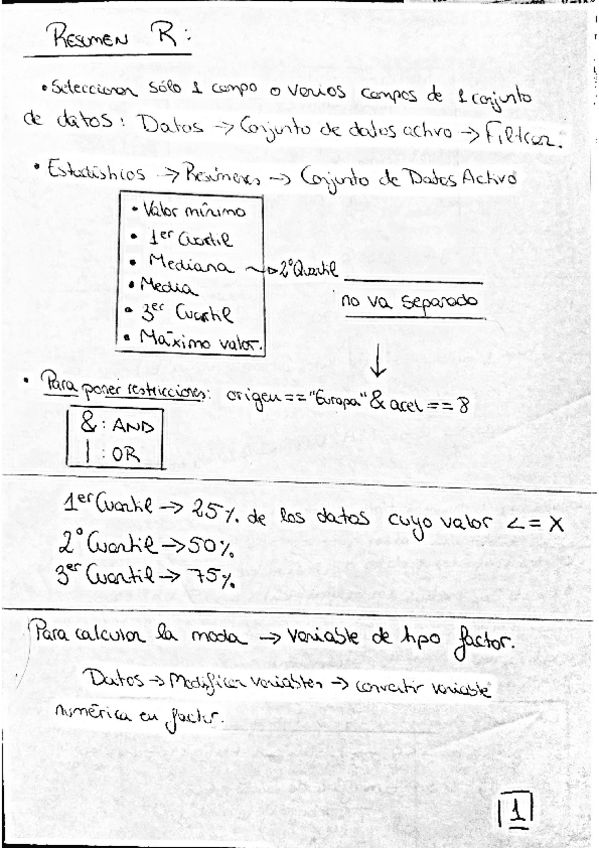 RESUMEN R:
• Seleccionar sólo 1 campo o varios campos de 1 conjunto
de datos: Datos → Conjunto de datos activo → Filtrar.
• Estadísticos → Resúmenes → Conjunto de Datos Activo
• Valor mínimo
• 1er Cuartil
• Mediana → 2º Cuartil
• Media
• 3er Cuartil
• Máximo valor.
no va separado
↓
• Para poner restricciones: origen == "Europa" & acel == 8
& : AND
| : OR
1er Cuartil → 25% de los datos cuyo valor <= X
2º Cuartil → 50%
3er Cuartil → 75%
Para calcular la moda → variable de tipo factor.
Datos → Modificar variables → convertir variable
numérica en factor.
1